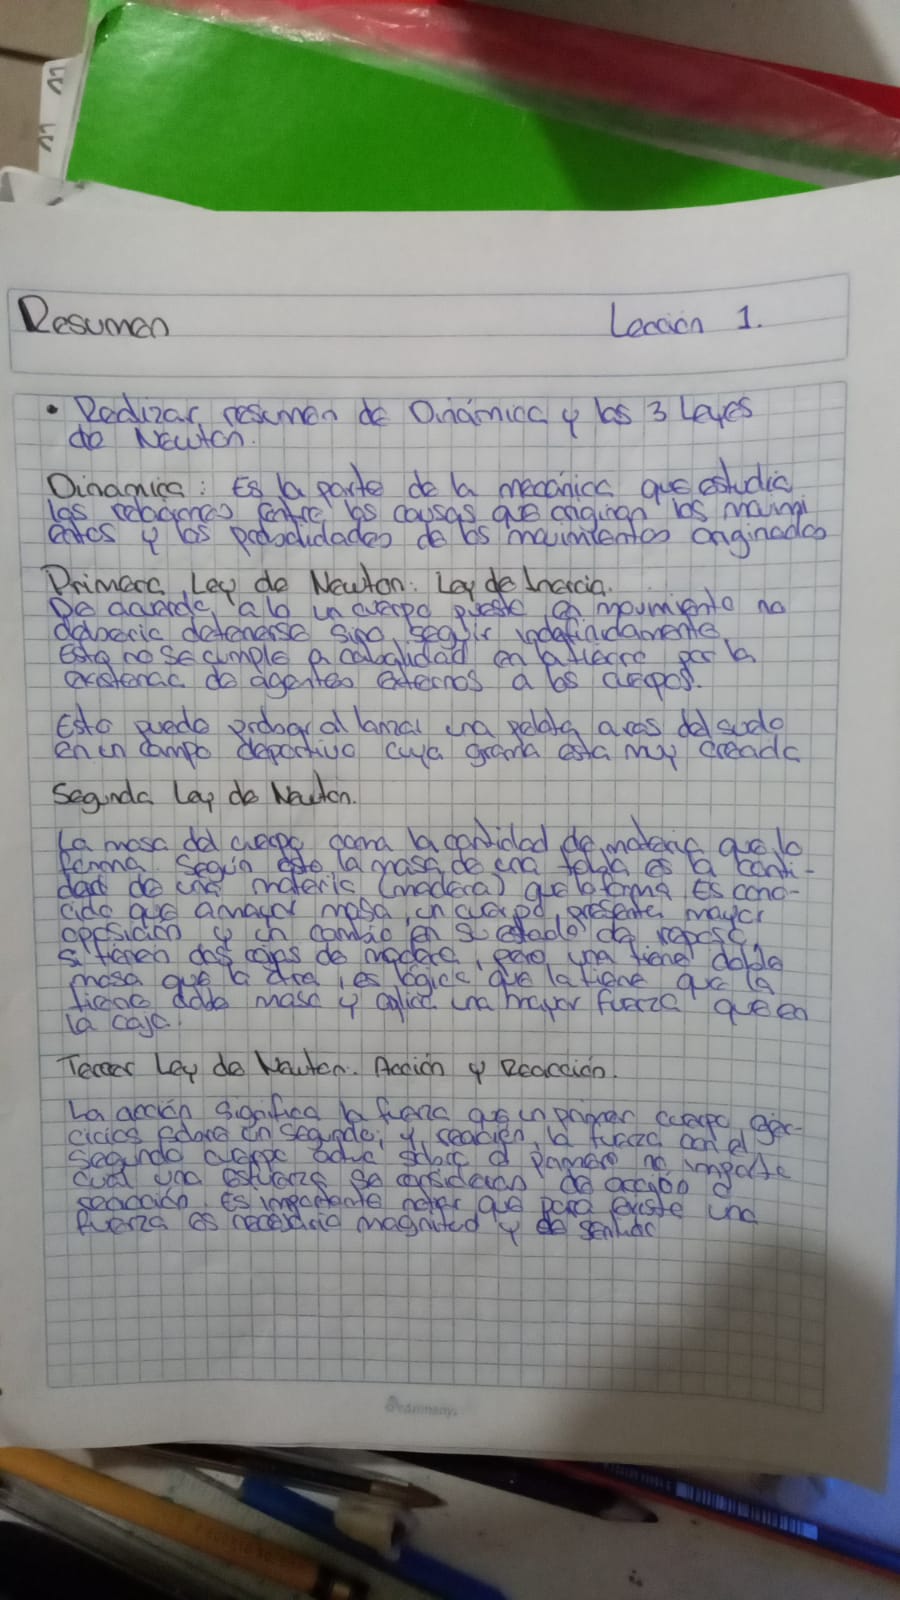 Resumen Lección 1.
• Realizar resumen de Dinámica y las 3 Leyes
de Newton.
Dinamica: Es la parte de la mecánica que estudia
las relaciones entre las causas que originan los movimi
entos y las de los movimientos originados
Primera Ley de Newton: Ley de Inercia.
De acuerdo a la un cuerpo puesto en movimiento no
deberia detenerse sino seguir indefinidamente
Esto no se cumple a cabalidad en la tierra por la
existencia de agentes externos a los cuerpos.
Esto puede probar al lanzar una pelota a ras del suelo
en un campo deportivo cuya grama esta muy
Segunda Ley de Newton.
La masa del cuerpo como la cantidad de materia que lo
forma. Según esto la masa de una es la canti-
dad de una materia (madera) que la forma. Es cono-
cido que a mayor masa, un cuerpo, presenta mayor
oposición y un cambio en su estado de reposo,
si tienen dos cajas de madera, pero una tiene doble
masa que la otra, es lógico que la tiene que la
tiene doble masa y una mayor fuerza que en
la caja.
Tercer Ley de Newton. Acción y Reacción.
La acción significa la fuerza que un primer cuerpo
sobre un segundo, y reación, la fuerza con el
segundo cuerpo sobre el primero no importa
cual una se consideran de acción o
reacción. Es importante notar que para existe una
fuerza es necesario magnitud y de sentido